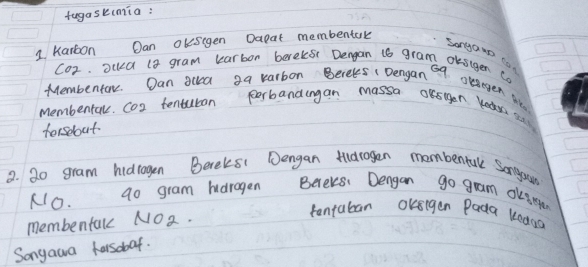 tugas kimia :
1. Karbon Dan oksigen Dapat membentuk Sengawa
CO2. Jika 12 gram karbon bereksi Dengan 16 gram oksigen
Membentuk. Dan Jika 24 karbon Bereksi Dengan 64 oksigen
Membentuk. CO2 tentukan perbandingan massa oksigen kedua
tersebut.
2. 20 gram hidrogen Bereksi Dengan Hidrogen mambentuk Sengawa
NO. 40 gram hidrogen Bereksi Dengan 90 gram oksigen
membentuk NO2. tentukan oksigen Pada kedua
Sangawa tersebut.